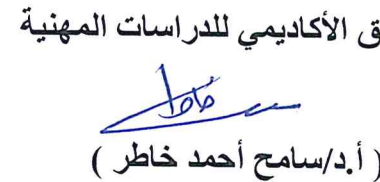 ق الأكاديمي للدراسات المهنية
خاطر
( أ.د/سامح أحمد خاطر )